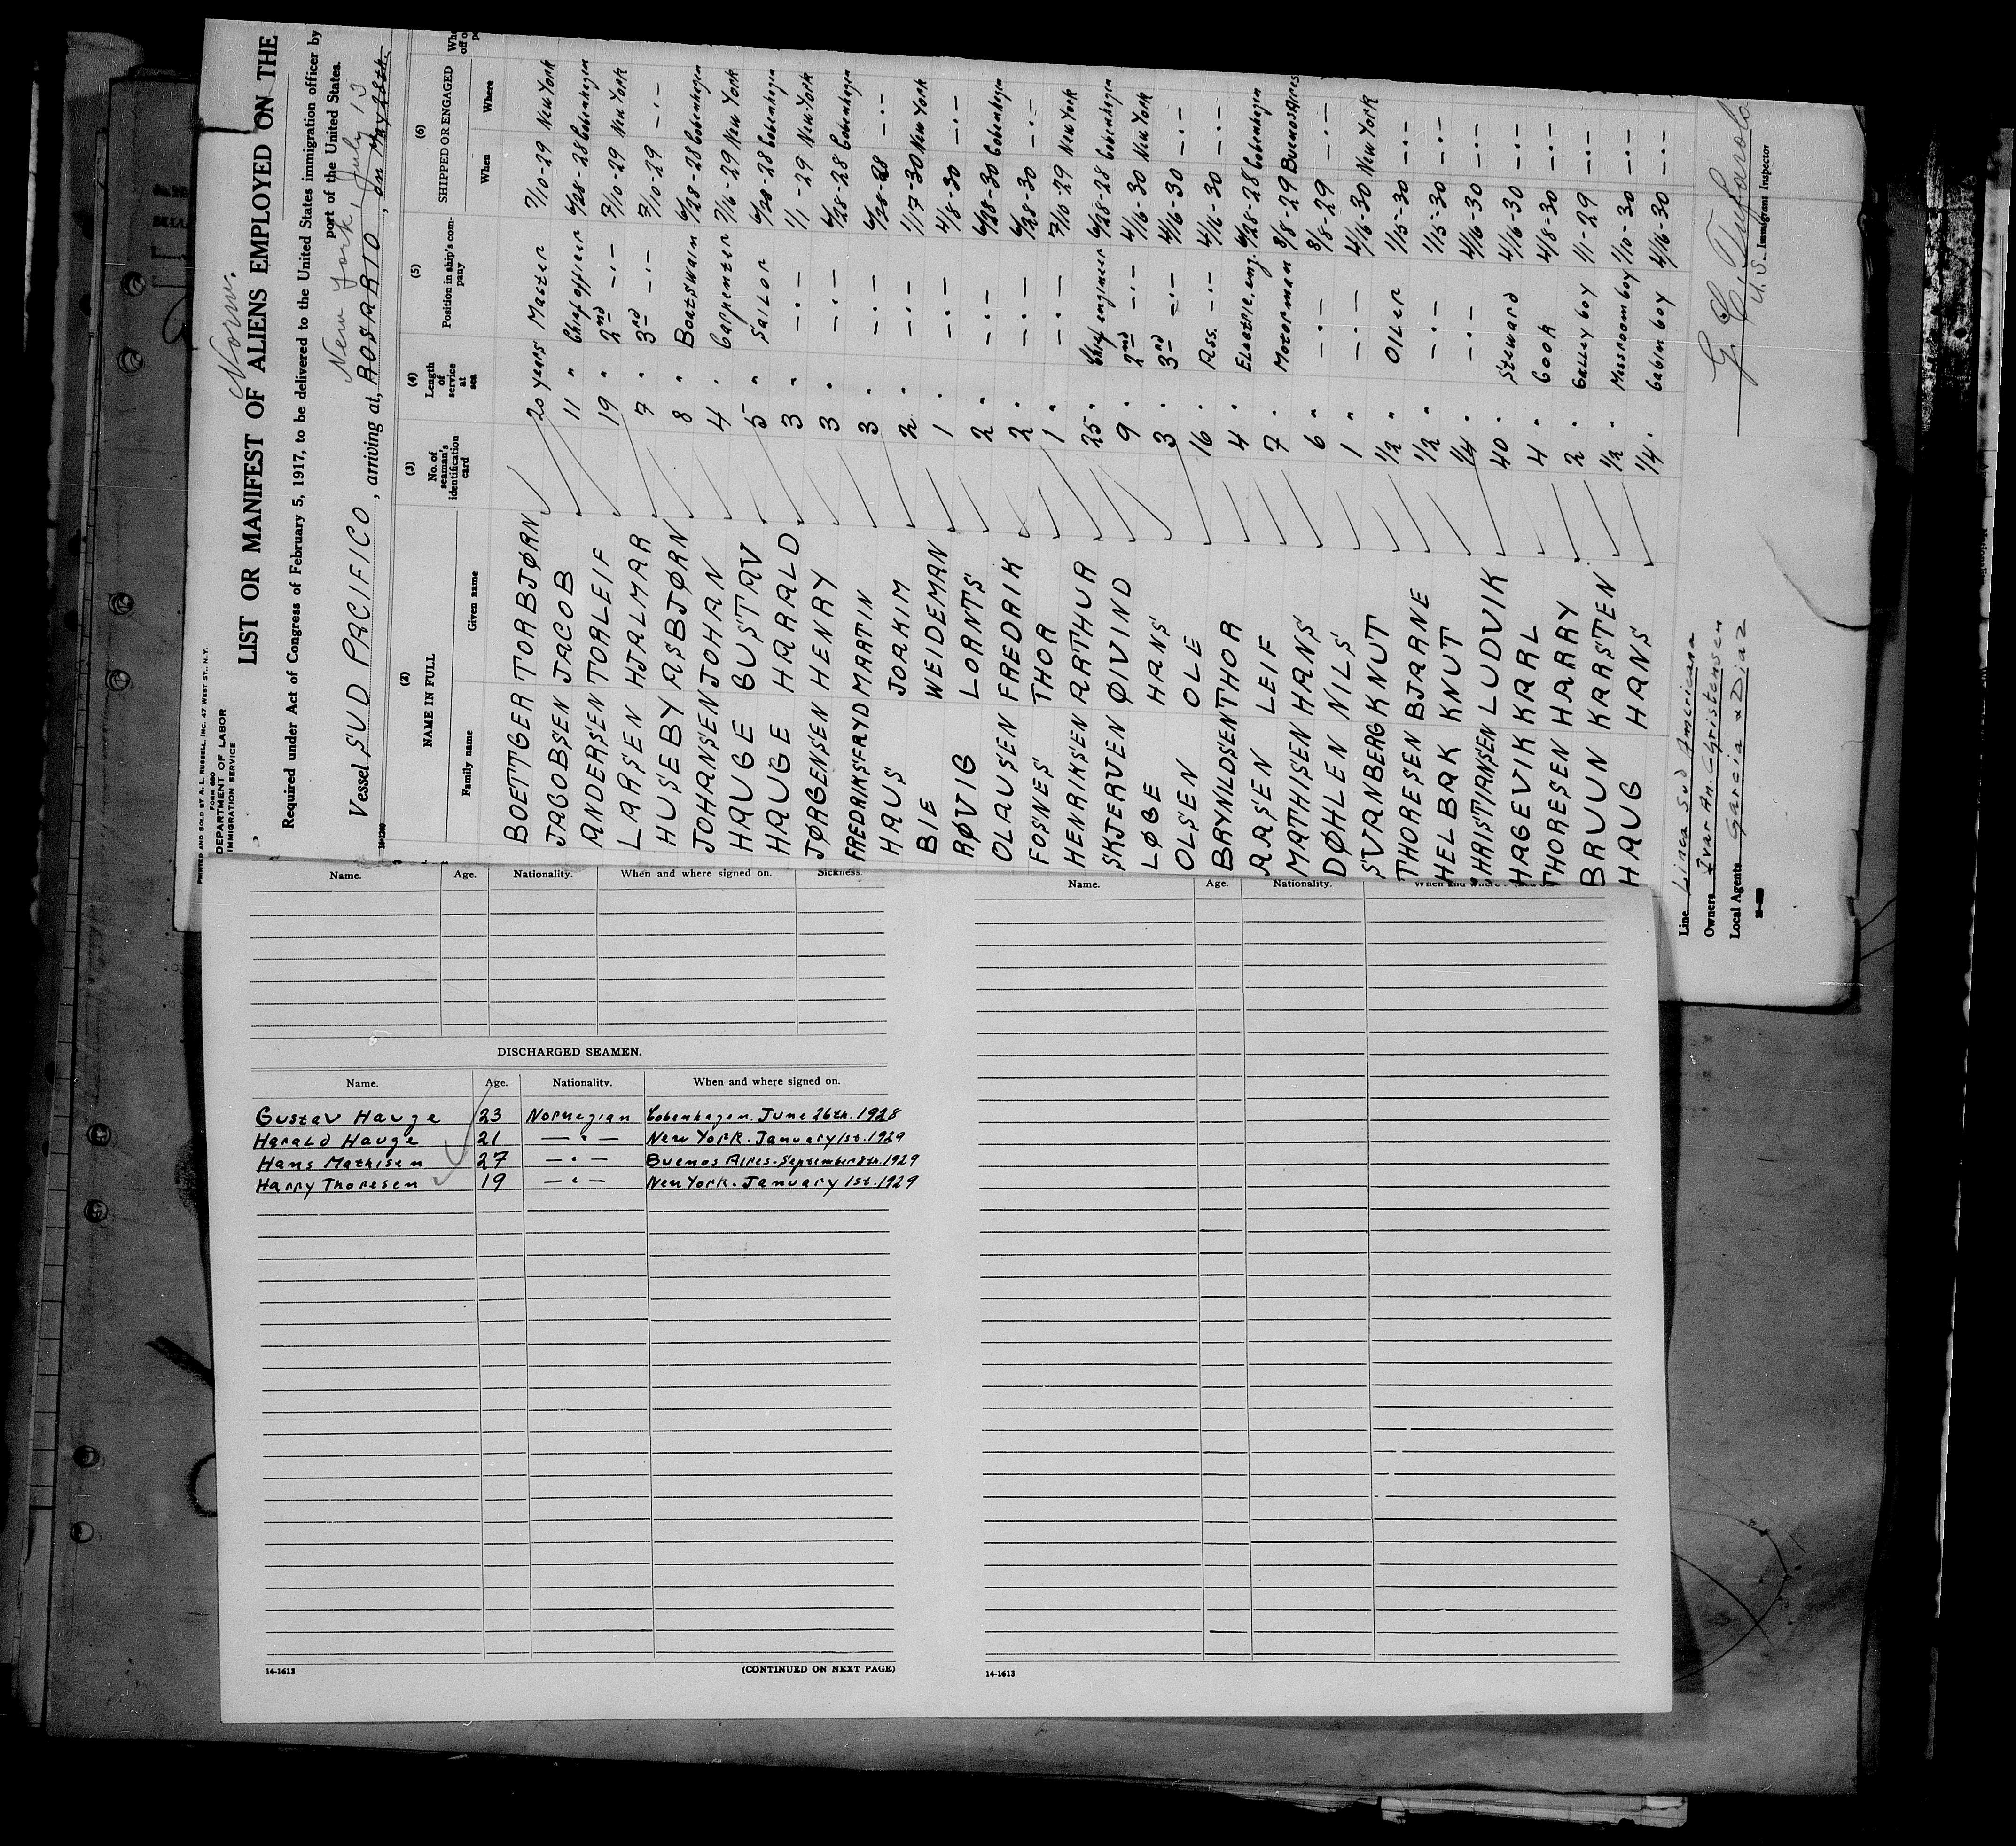 Norw.
PRINTED AND SOLD BY A. L. RUSSELL, INC. 47 WEST ST., N.Y.
FORM 680
DEPARTMENT OF LABOR
IMMIGRATION SERVICE
LIST OR MANIFEST OF ALIENS EMPLOYED ON THE
Required under Act of Congress of February 5, 1917, to be delivered to the United States immigration officer by
port of the United States.
New York, July 13
Vessel SUD PACIFICO, arriving at, ROSARIO, on May 28th.
(2) (3) (4) (5) (6)
NAME IN FULL No. of seaman's identification card Length of service at sea Position in ship's company SHIPPED OR ENGAGED
Family name Given name When Where
BOETTGER TORBJØRN 20 years Master 7/10-29 New York
JACOBSEN JACOB 11 " Chief officer 6/28-28 Cobenhagen
ANDERSEN TORLEIF 19 " 2nd -.- 7/10-29 New York
LARSEN HJALMAR 7 " 3rd -.- 7/10-29 -.-
HUSEBY ASBJØRN 8 " Boatswain 6/28-28 Cobenhagen
JOHANSEN JOHAN 4 " Carpenter 7/16-29 New York
HAUGE GUSTAV 5 " Sailor 6/28-28 Cobenhagen
HAUGE HARALD 3 " -.- 1/1-29 New York
JØRGENSEN HENRY 3 " -.- 6/28-28 Cobenhagen
FREDRIKSFRYD MARTIN 3 " -.- 6/28-28 -.-
HAUS JOAKIM 2 " -.- 1/17-30 New York
BIE WEIDEMAN 1 " -.- 4/8-30 -.-
RØVIG LORNTS 2 " -.- 6/28-30 Cobenhagen
OLAUSEN FREDRIK 2 " -.- 6/28-30 -.-
FOSNES THOR 1 " -.- 7/10-29 New York
HENRIKSEN ARTHUR 25 " Chief engineer 6/28-28 Cobenhagen
SKJERVEN ØIVIND 9 " 2nd -.- 4/16-30 New York
LØBE HANS 3 " 3rd -.- 4/16-30 -.-
OLSEN OLE 16 " Ass. -.- 4/16-30 -.-
BRYNILDSEN THOR 4 " Electric. eng. 6/28-28 Cobenhagen
AASEN LEIF 7 " Motorman 8/8-29 Buenos Aires
MATHISEN HANS 6 " -.- 8/8-29 -.-
DØHLEN NILS 1 " -.- 4/16-30 New York
SVANBERG KNUT 1/2 " Oiler 1/15-30 -.-
THORESEN BJARNE 1/2 " -.- 1/15-30 -.-
HELBAK KNUT 1/4 " -.- 4/16-30 -.-
CHRISTIANSEN LUDVIK 40 " Steward 4/16-30 -.-
HAGEVIK KARL 4 " Cook 4/8-30 -.-
THORESEN HARRY 2 " Galley boy 1/1-29 -.-
BRUUN KARSTEN 1/2 " Messroom boy 1/10-30 -.-
HAUG HANS 1/4 " Cabin boy 4/16-30 -.-
Line Linea Sud Americana
Owners Ivar An. Christensen
Local Agents Garcia & Diaz
U.S. Immigrant Inspector
Name. Age. Nationality. When and where signed on. Sickness.
DISCHARGED SEAMEN.
Name. Age. Nationality. When and where signed on.
Gustav Hauge 23 Norwegian Cobenhagen. June 26th. 1928
Harald Hauge 21 — " — New York. January 1st. 1929
Hans Mathisen 27 — " — Buenos Aires. September 8th. 1929
Harry Thoresen 19 — " — New York. January 1st. 1929
14-1613 (CONTINUED ON NEXT PAGE)
Name. Age. Nationality. When and where
14-1613